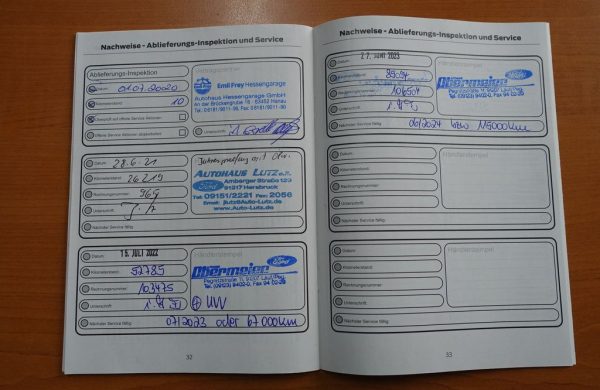 Nachweise - Ablieferungs-Inspektion und Service
Ablieferungs-Inspektion
Datum 01.07.2020
Kilometerstand 10
Überprüft auf offene Service-Aktionen
Offene Service-Aktionen abgearbeitet
Unterschrift
Vertragspartner
Emil Frey Hessengarage
Autohaus Hessengarage GmbH
An der Brückengrube 16 - 63452 Hanau
Datum 28.6.21
Kilometerstand 26219
Rechnungsnummer 969
Unterschrift
Nächster Service fällig
AUTOHAUS LUTZ
Ford
Amberger Straße 123
91217 Hersbruck
Tel: 09151/2221 Fax: 2056
Email: jlutz@Auto-Lutz.de
www.Auto-Lutz.de
Datum 15. JULI 2022
Kilometerstand 52785
Rechnungsnummer 103475
Unterschrift
Nächster Service fällig 07/2023 oder 67000km
Händlerstempel
Obermeier Ford
32
Nachweise - Ablieferungs-Inspektion und Service
27. JUNI 2023
106504
Nächster Service fällig 06/2024 bzw 115000km
Obermeier Ford
Datum
Kilometerstand
Rechnungsnummer
Unterschrift
Nächster Service fällig
Händlerstempel
Datum
Kilometerstand
Rechnungsnummer
Unterschrift
Nächster Service fällig
Händlerstempel
33